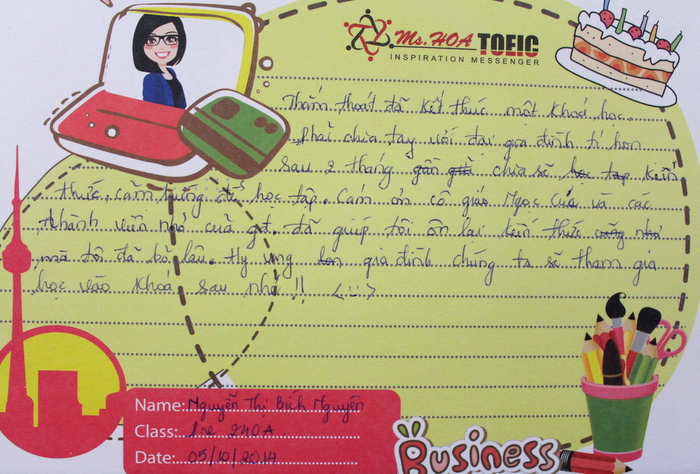 Ms. HOA TOEIC
INSPIRATION MESSENGER
Thấm thoắt đã kết thúc một khoá học.
Phải chia tay với đại gia đình tí hon
sau 2 tháng gần gũi chia sẽ học tập kiến
thức, cảm hứng để học tập. Cám ơn cô giáo Ngọc Cúc và các
thành viên nhỏ của gđ. đã giúp tôi ôn lại kiến thức
mà tôi đã bỏ lâu. Hy vọng gia đình chúng ta sẽ tham gia
học vào khoá sau nha !!
Name: Nguyễn Thị Bích Nguyên
Class: Pre 240A
Date: 05/10/2014
Business